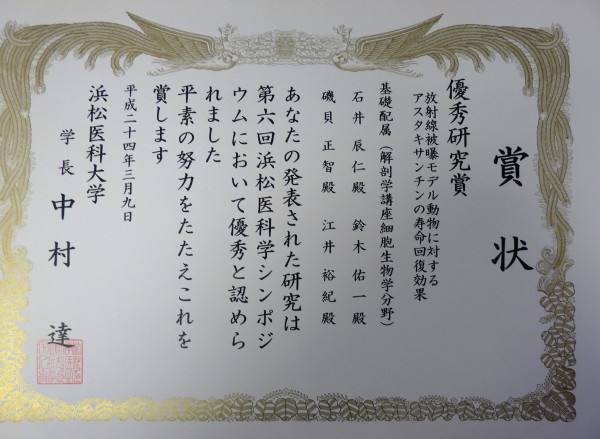 賞状
優秀研究賞
放射線被曝モデル動物に対する
アスタキサンチンの寿命回復効果
基礎配属（解剖学講座細胞生物学分野）
石井 辰仁殿 鈴木 佑一殿
磯貝 正智殿 江井 裕紀殿
あなたの発表された研究は
第六回浜松医科学シンポジ
ウムにおいて優秀と認めら
れました
平素の努力をたたえこれを
賞します
平成二十四年三月九日
浜松医科大学
学長 中村 達